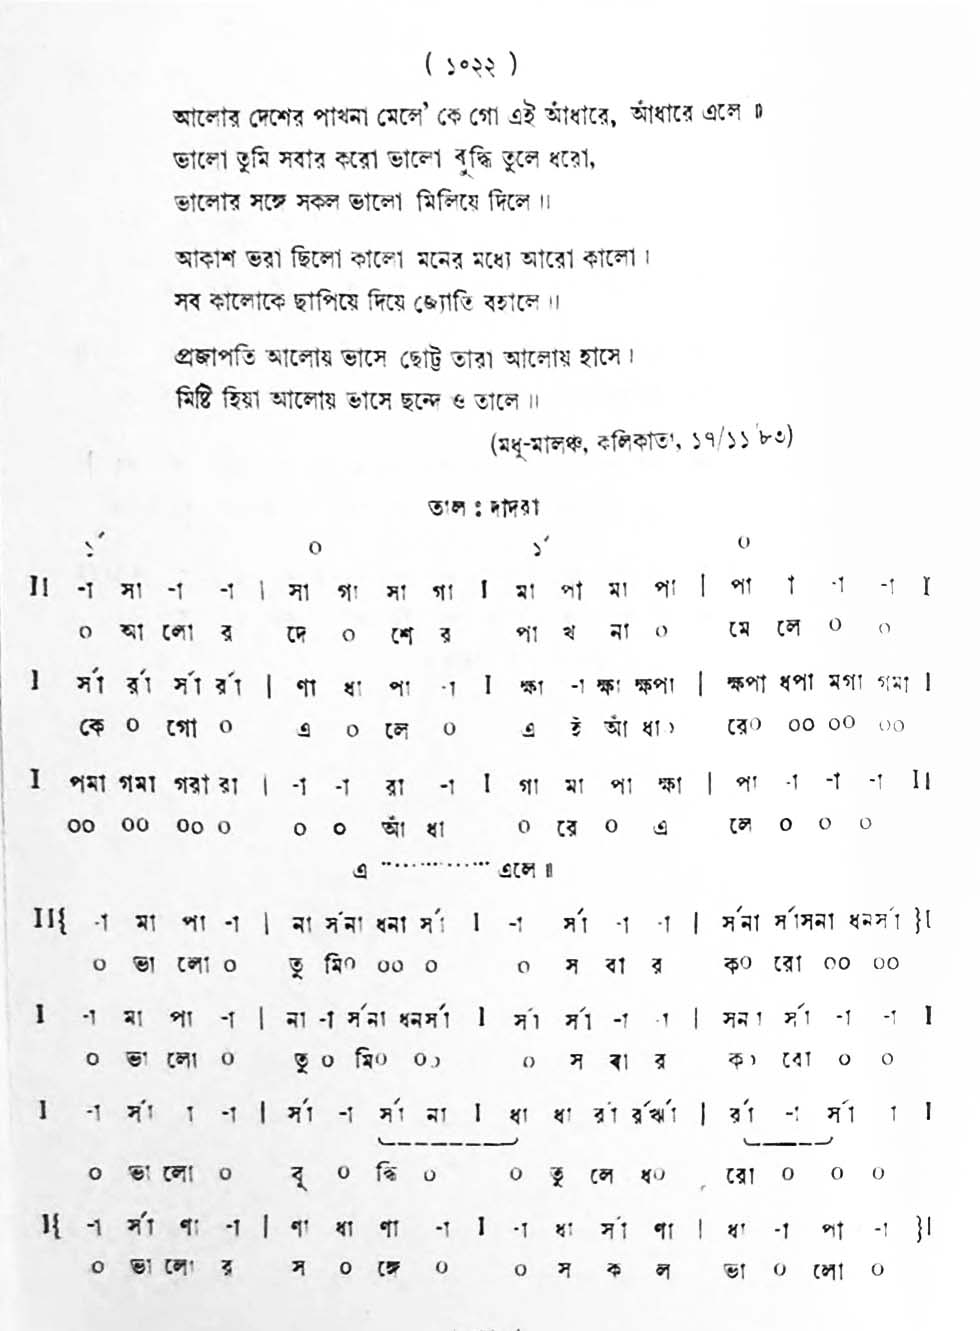 ( ১০২২ )
আলোর দেশের পাখনা মেলে' কে গো এই আঁধারে, আঁধারে এলে॥
ভালো তুমি সবার করো ভালো বুদ্ধি তুলে ধরো,
ভালোর সঙ্গে সকল ভালো মিলিয়ে দিলে॥
আকাশ ভরা ছিলো কালো মনের মধ্যে আরো কালো।
সব কালোকে ছাপিয়ে দিয়ে জ্যোতি বহালে॥
প্রজাপতি আলোয় ভাসে ছোট্ট তারা আলোয় হাসে।
মিষ্টি হিয়া আলোয় ভাসে ছন্দে ও তালে॥
(মধু-মালঞ্চ, কলিকাতা, ১৭/১১'৮৩)
তাল : দাদরা
১´ ০ ১´ ০
II -া সা -া -া | সা গা সা গা I মা পা মা পা | পা া -া -া I
০ আ লো র দে ০ শে র পা খ না ০ মে লে ০ ০
I র্সা র্রা র্সা র্রা | ণা ধা পা -া I ক্ষা -া ক্ষা ক্ষপা | ক্ষপা ধপা মগা গমা I
কে ০ গো ০ এ ০ লে ০ এ ই আঁ ধা০ রে০ ০০ ০০ ০০
I পমা গমা গরা রা | -া -া রা -া I গা মা পা ক্ষা | পা -া -া -া II
০০ ০০ ০০ ০ ০ ০ আঁ ধা ০ রে ০ এ লে ০ ০ ০
এ ............... এলে॥
II{ -া মা পা -া | না র্সনা ধনা র্সা I -া র্সা -া -া | র্সনা র্সার্সনা ধনর্সা }I
০ ভা লো ০ তু মি০ ০০ ০ ০ স বা র ক০ রো ০০ ০০
I -া মা পা -া | না -া র্সনা ধনর্সা I র্সা র্সা -া -া | সনা র্সা -া -া I
০ ভা লো ০ তু ০ মি০ ০০ ০ স বা র ক০ রো ০ ০
I -া র্সা া -া | র্সা -া র্সা না I ধা ধা র্রা র্রর্ঝা | র্রা -া র্সা া I
০ ভা লো ০ বু ০ দ্ধি ০ ০ তু লে ধ০ রো ০ ০ ০
I{ -া র্সা ণা -া | ণা ধা ণা -া I -া ধা র্সা ণা | ধা -া পা -া }I
০ ভা লো র স ০ ঙ্গে ০ ০ স ক ল ভা ০ লো ০